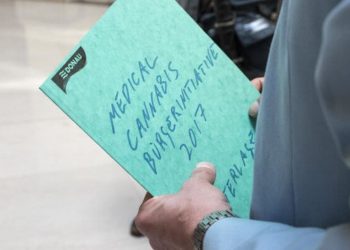 DONAU
MEDICAL
CANNABIS
BÜRGERINITIATIVE
2017